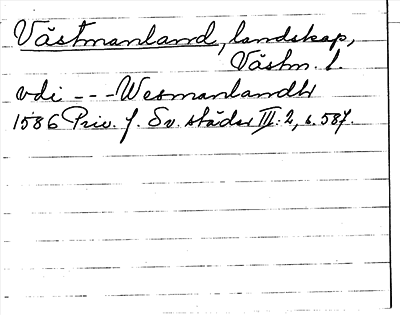 Västmanland, landskap,
Västm. l.
udi --- Wesmanlandh
1586 Priv. f. Sv. städer III:2, s. 587.